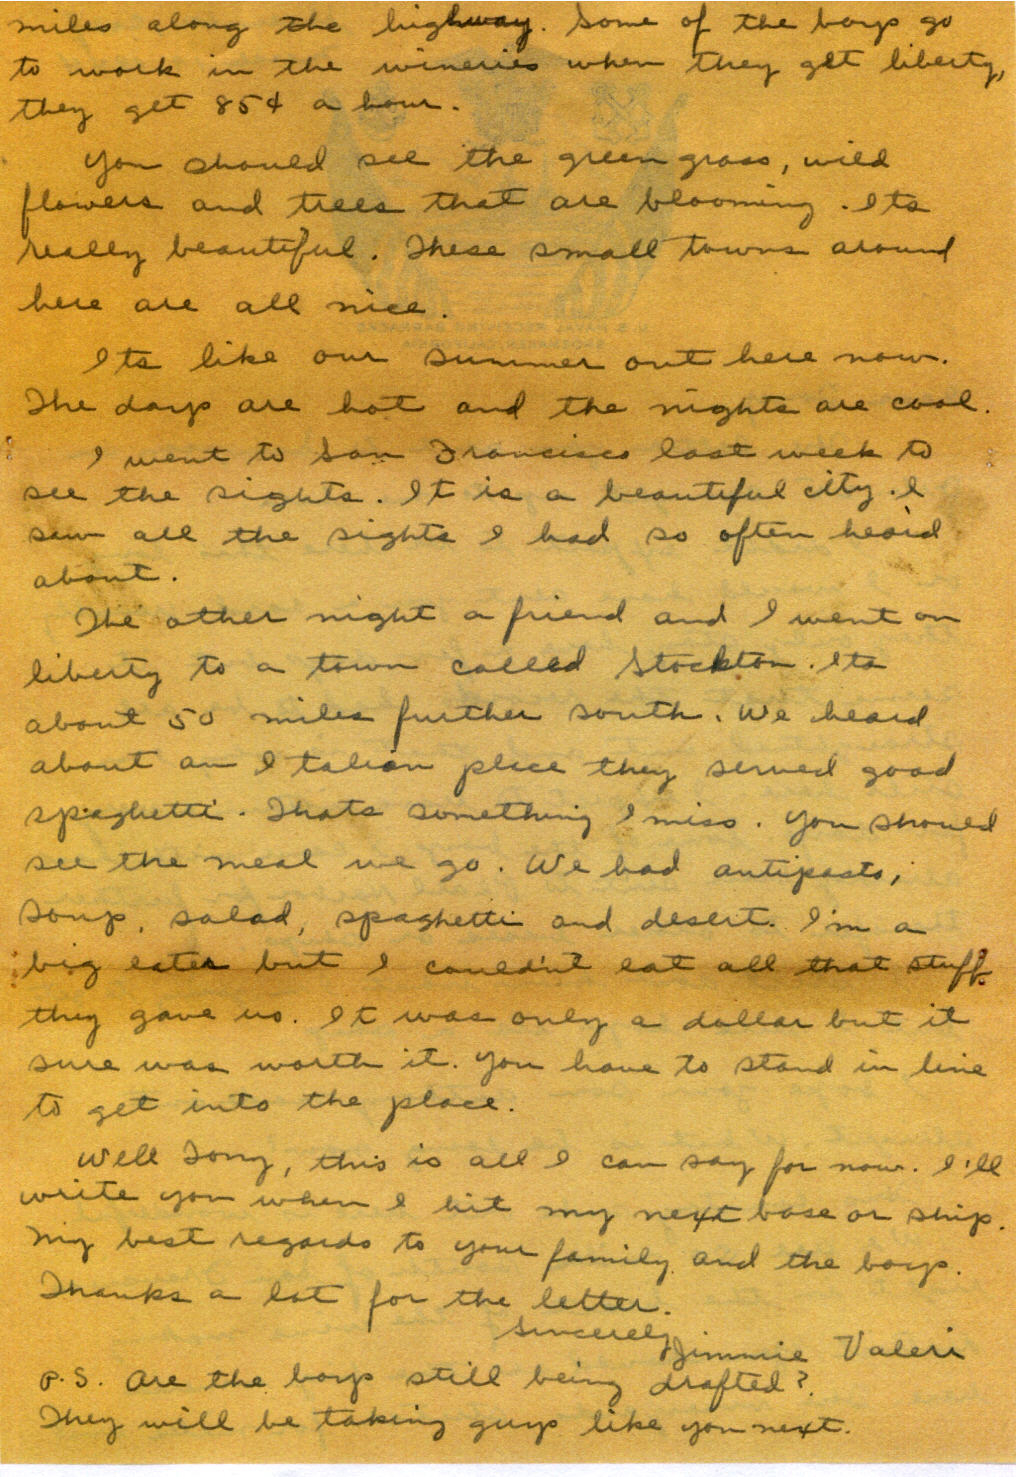 miles along the highway. Some of the boys go
to work in the wineries when they get liberty,
they get 85¢ a hour.
You should see the green grass, wild
flowers and trees that are blooming. Its
really beautiful. These small towns around
here are all nice.
Its like our summer out here now.
The days are hot and the nights are cool.
I went to San Francisco last week to
see the sights. It is a beautiful city. I
saw all the sights I had so often heard
about.
The other night a friend and I went on
liberty to a town called Stockton. Its
about 50 miles further south. We heard
about an Italian place they served good
spaghetti. Thats something I miss. You should
see the meal we go. We had antipasto,
soup, salad, spaghetti and desert. I'm a
big eater but I couldn't eat all that stuff
they gave us. It was only a dollar but it
sure was worth it. You have to stand in line
to get into the place.
Well Tony, this is all I can say for now. I'll
write you when I hit my next base or ship.
My best regards to your family and the boys.
Thanks a lot for the letter.
Sincerely
Jimmie Valeri
P.S. Are the boys still being drafted?
They will be taking guys like you next.